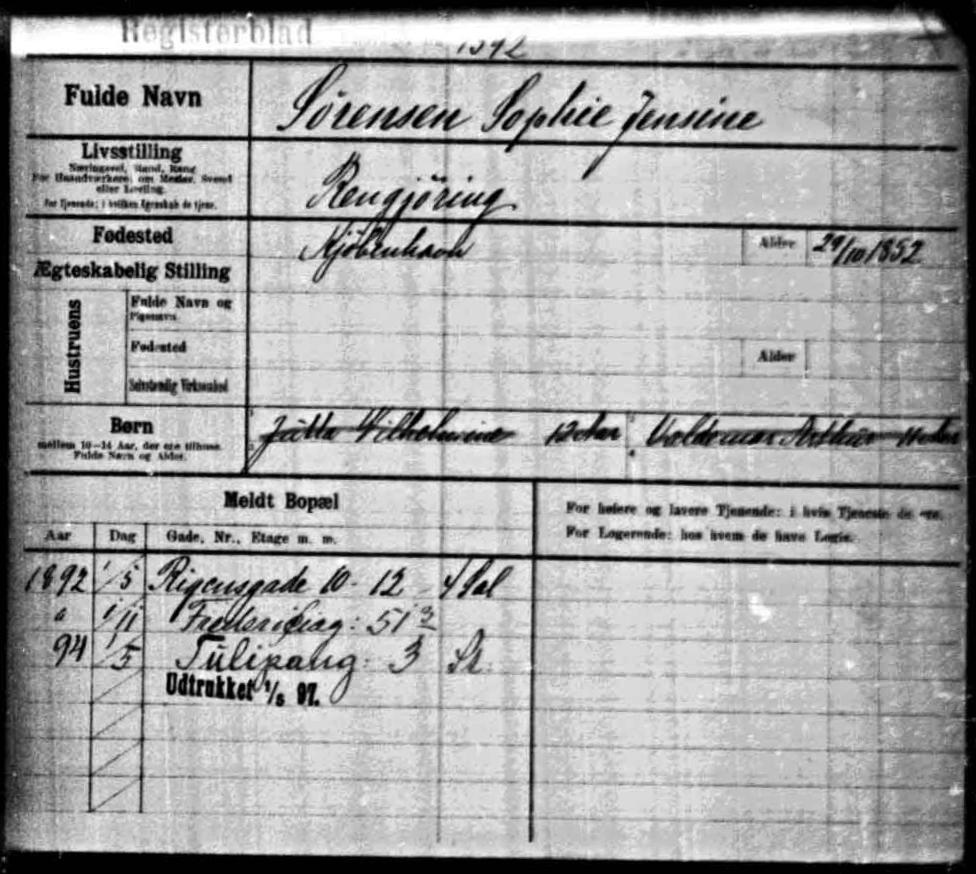 Registerblad
1892
Fulde Navn Sørensen Sophie Jensine
Livsstilling
Næringsvej, Stand, Rang
For Haandværkere: om Mester, Svend
eller Lærling.
For Tjenende: i hvilken Egenskab de tjene.
Rengjøring
Fødested Kjöbenhavn Alder 29/10 1852
Ægteskabelig Stilling
Hustruens
Fulde Navn og
Pigenavn
Fødested Alder
Selvstændig Virksomhed
Børn
mellem 10-14 Aar, der ere tilhuse.
Fulde Navn og Alder.
Jutta Vilhelmine 12 Aar Valdemar Arthur 11 Aar
Meldt Bopæl
For høiere og lavere Tjenende: i hvis Tjeneste de ere.
For Logerende: hos hvem de have Logis.
Aar Dag Gade, Nr., Etage m. m.
1892 1/5 Rigensgade 10 - 12 4 Sal
" 1/11 Fredericiag: 51 2
94 1/5 Tulipang: 3 St
Udtrukket 1/5 97.